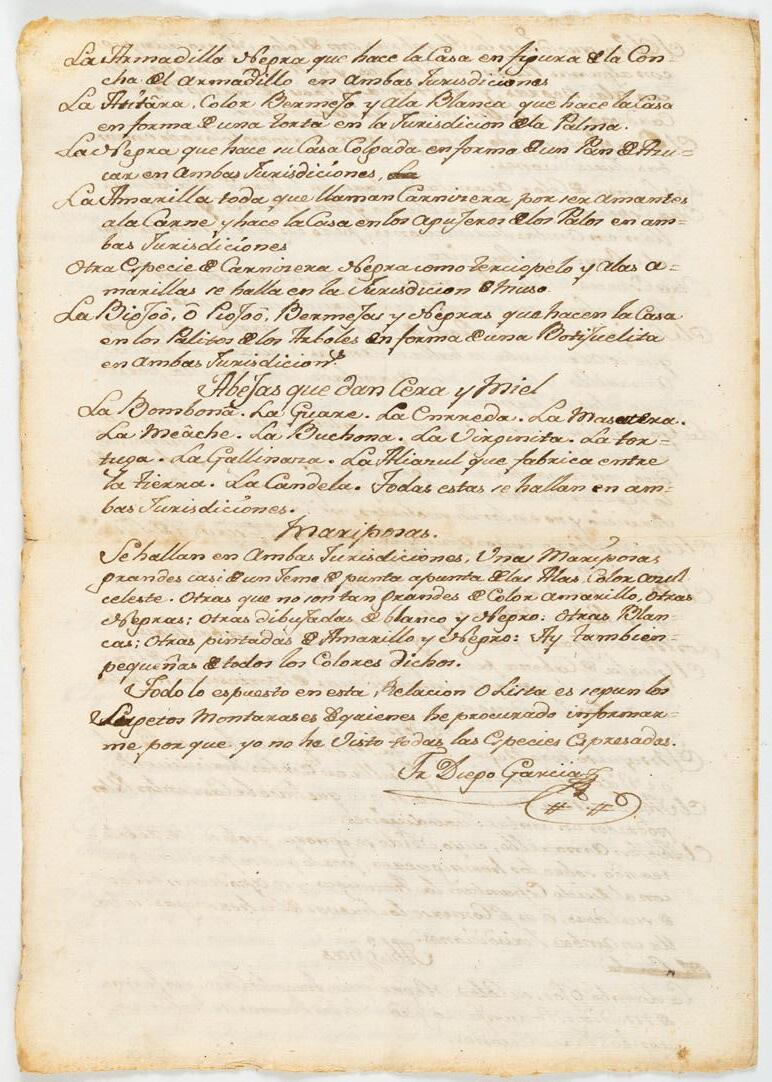 La Armadilla Negra que hace la Casa en figura de la Con-
cha del armadillo en ambas Jurisdiciones
La Atitâra, Color Bermejo y ala Blanca que hace la Casa
en forma de una torta en la Jurisdicion de la Palma.
La Negra que hace su Casa Colgada en forma de un Pan de Azu-
car en Ambas Jurisdiciones,
La Amarilla toda que llaman Carnizera por ser amantes
a la Carne y hace la Casa en los Agujeros de los Palos en am-
bas Jurisdiciones
Otra Especie de Carnizera Negra como terciopelo y alas a-
marillas se halla en la Jurisdicion de Muso
La Biojoô, ô Piojoô, Bermejas y Negras que hacen la Casa
en los Palitos de los Arboles en forma de una Botijuelita
en ambas Jurisdicion.s
Abejas que dan Cera y Miel
La Bombonâ. La Guare. La Enrreda. La Masatera.
La Meâche. La Buchona. La Virginita. La tor-
tuga. La Gallinaza. La Aliazul que fabrica entre
la tierra. La Candela. Todas estas se hallan en am-
bas Jurisdiciones.
Mariposas.
Se hallan en Ambas Jurisdiciones, Unas Mariposas
grandes casi de un Jeme de punta a punta de las Alas, Color azul
celeste. Otras que no son tan grandes de Color Amarillo, Otras
Negras; Otras dibujadas de blanco y Negro: Otras Blan-
cas; Otras pintadas de Amarillo y Negro: Ay tambien
pequeñas de todos los Colores dichos.
Todo lo espuesto en esta Relacion O Lista es segun los
Sugetos Montarases de quienes he procurado informar-
me, por que yo no he Visto todas las Especies Espresadas.
Fr. Diego Garcia